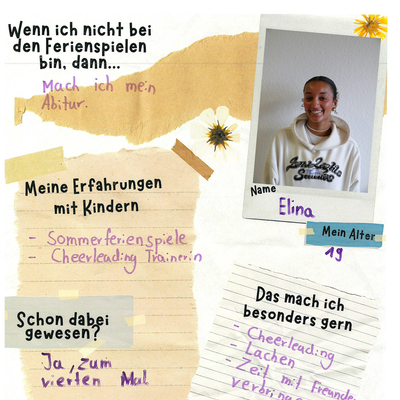 Wenn ich nicht bei
den Ferienspielen
bin, dann...
Mach ich mein
Abitur.
Name
Elina
Mein Alter
19
Meine Erfahrungen
mit Kindern
- Sommerferienspiele
- Cheerleading Trainerin
Schon dabei
gewesen?
Ja, zum
vierten Mal
Das mach ich
besonders gern
- Cheerleading
- Lachen
- Zeit mit Freunden
verbringen